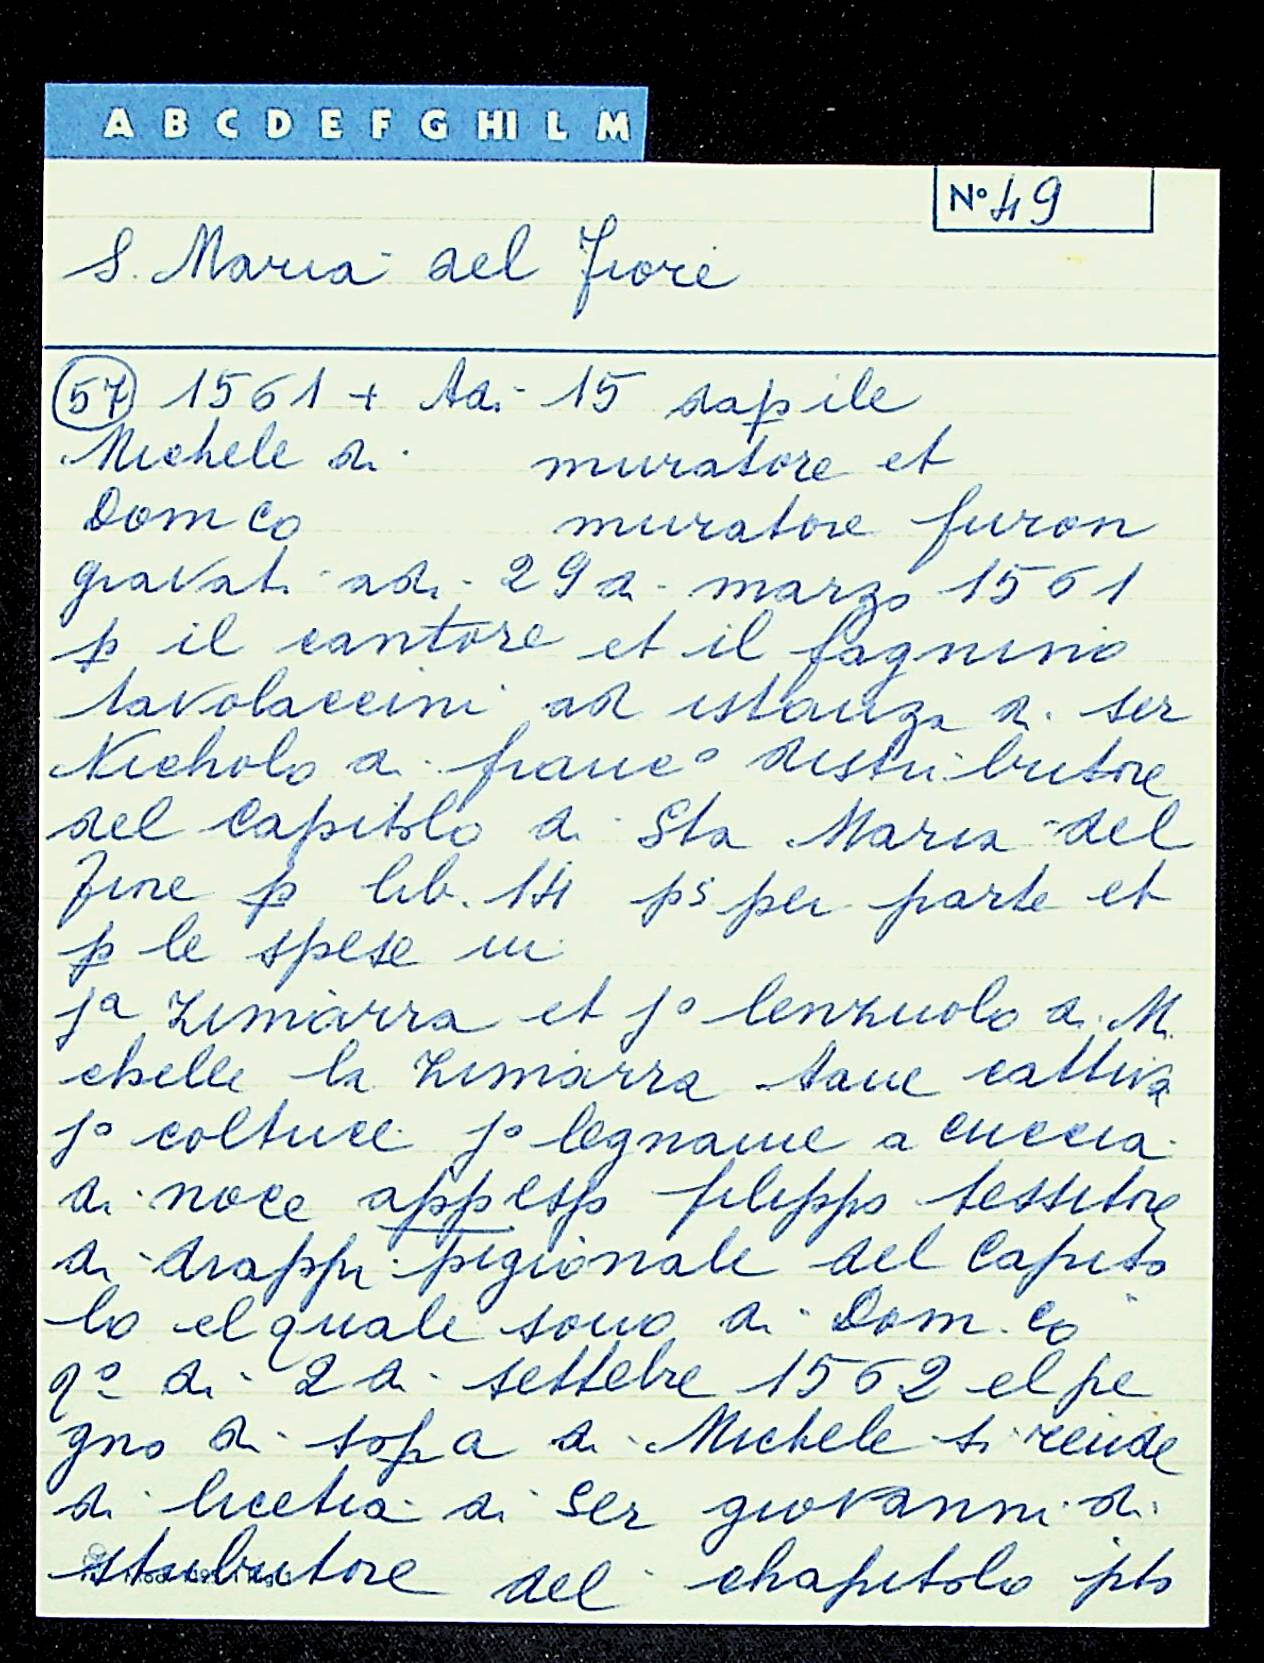 A B C D E F G HI L M
Nº 49
S. Maria del Fiore
57 1561 + Adi 15 dapile
Michele di muratore et
Domco muratore furon
gravati adi 29 di marzo 1561
p il cantore et il fagnino
tavolaccini ad istanza di ser
Nicholo di francº distributore
del Capitolo di Sta Maria del
Fiore p lib. 14 ps per parte et
p le spese in
jª Zimarra et jº lenzuolo di Mi
chelle la Zimarra tane cattiva
jº coltrice jº legname a cuccia
di noce appesso filippo tessitore
di drappi pigionale del Capito
lo el quale sono di Dom.co
qº di 2 di settebre 1562 el pe
gno di sopa di Michele si rende
di licetia di Ser giovanni di
stributore del chapitolo pto